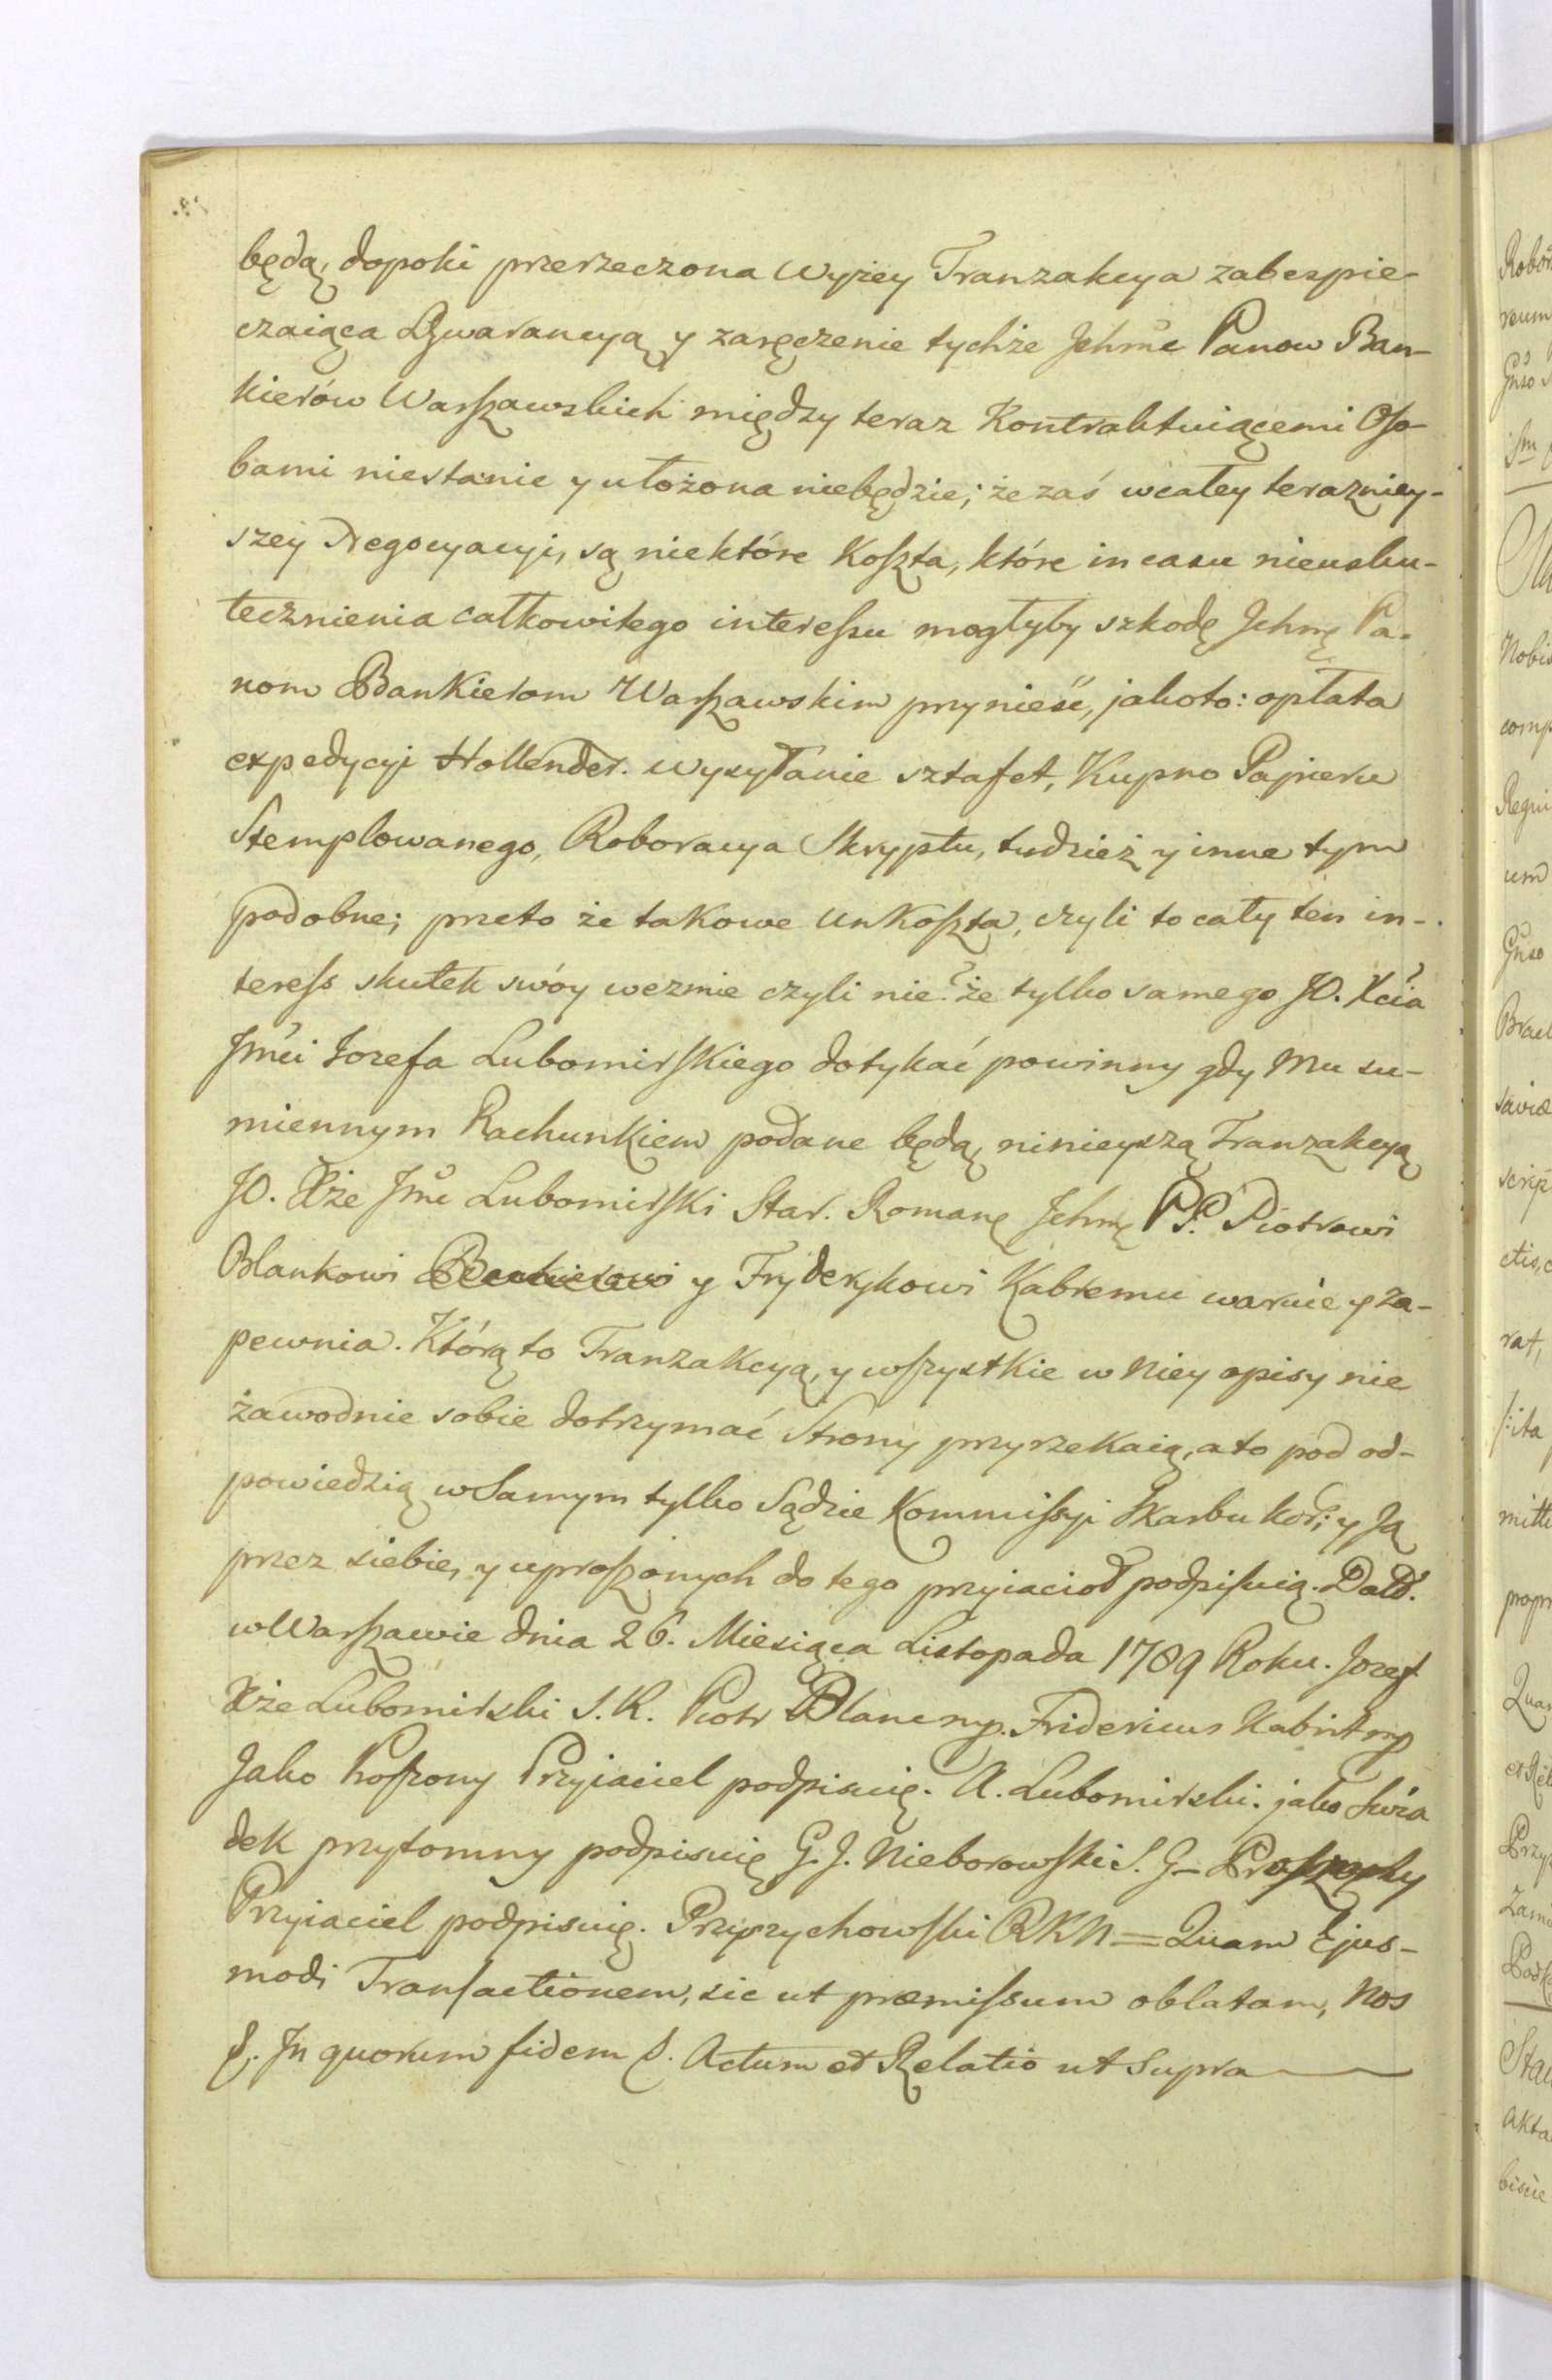 będą, dopoki przerzeczona wyżey Tranzakcya zabespie-
czaiąca Gwarancyą y zaręczenie tychże Jchmc Panow Ban-
kierów Warszawskich między teraz Kontraktuiącemi Oso-
bami niestanie y ułożona niebędzie; że zaś wcałey terazniey-
szey Negocyacyi, są niektóre Koszta, które in casu nieusku-
tecznienia całkowitego interessu mogłyby szkodę Jchmę Pa-
nom Bankierom Warszawskim przynieść, jakoto: opłata
expedycyi Hollender. wysyłanie sztafet, Kupno Papieru
Stemplowanego, Roboracya Skryptu, tudzież y inne tym
podobne; przeto że takowe unkoszta, czyli to cały ten in-
teress skutek swóy wezmie czyli nie? że tylko samego JO. Xcia
Jmci Jozefa Lubomirskiego dotykać powinny gdy Mu su-
miennym Rachunkiem podane będą, ninieyszą Tranzakcyą
JO. Xże Jmc Lubomirski Star. Romanę Jchmę PP. Piotrowi
Blankowi Bankierowi y Fryderykowi Kabremu waruie y za-
pewnia. Którą to Tranzakcyą, y wszystkie w Niey opisy nie
zawodnie sobie dotrzymać Strony przyrzekaią, a to pod od-
powiedzią w Samym tylko Sądzie Kommissyi Skarbu Kor; y Ją
przez siebie, y uproszonych do tego przyiacioł podpisuią. Datt.
w Warszawie dnia 26. Miesiąca Listopada 1789 Roku. Jozef
Xże Lubomirski S. R. Piotr Blanc mp. Fridericus Kabrit mp
Jako Proszony Przyiaciel podpisuię. A. Lubomirski. jako Swia
dek przytomny podpisuię G. J. Nieborowski S. G- Proszony
Przyiaciel podpisuię. Przyszychowski RKN = Quam Ejus-
modi Transactionem, sic ut præmissum oblatam, Nos
In quorum fidem Actum et Relatio ut Supra